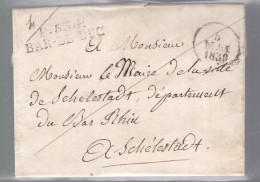 P.53.P.
BAR-LE-DUC
A Monsieur
5
MAI
1830
Monsieur le Maire de la ville
de Schélestadt, département
du Bas Rhin
A Schélestadt.